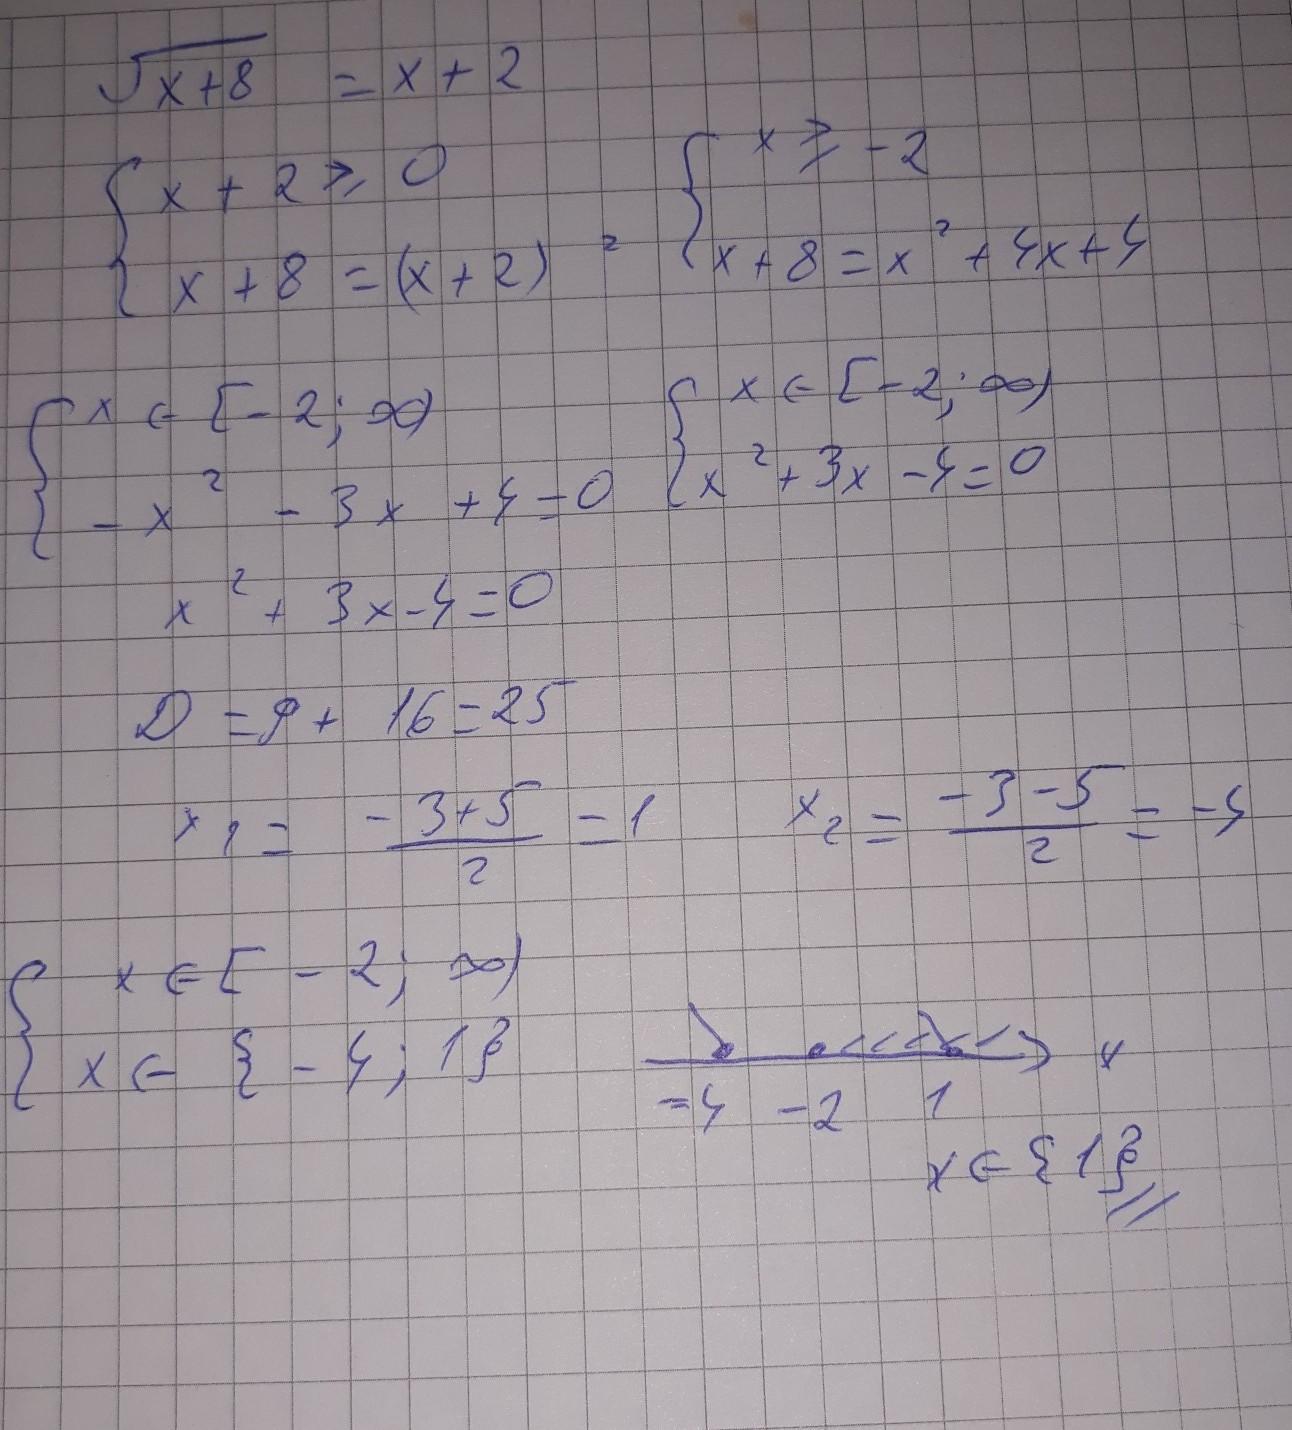 √(x+8) = x + 2
{ x + 2 ≥ 0
x + 8 = (x + 2)²
{ x ≥ -2
x + 8 = x² + 4x + 4
{ x ∈ [-2; ∞)
- x² - 3x + 4 = 0
{ x ∈ [-2; ∞)
x² + 3x - 4 = 0
x² + 3x - 4 = 0
D = 9 + 16 = 25
x₁ = (-3+5)/2 = 1
x₂ = (-3-5)/2 = -4
{ x ∈ [-2; ∞)
x ∈ {-4; 1}
x
-4 -2 1
x ∈ {1}